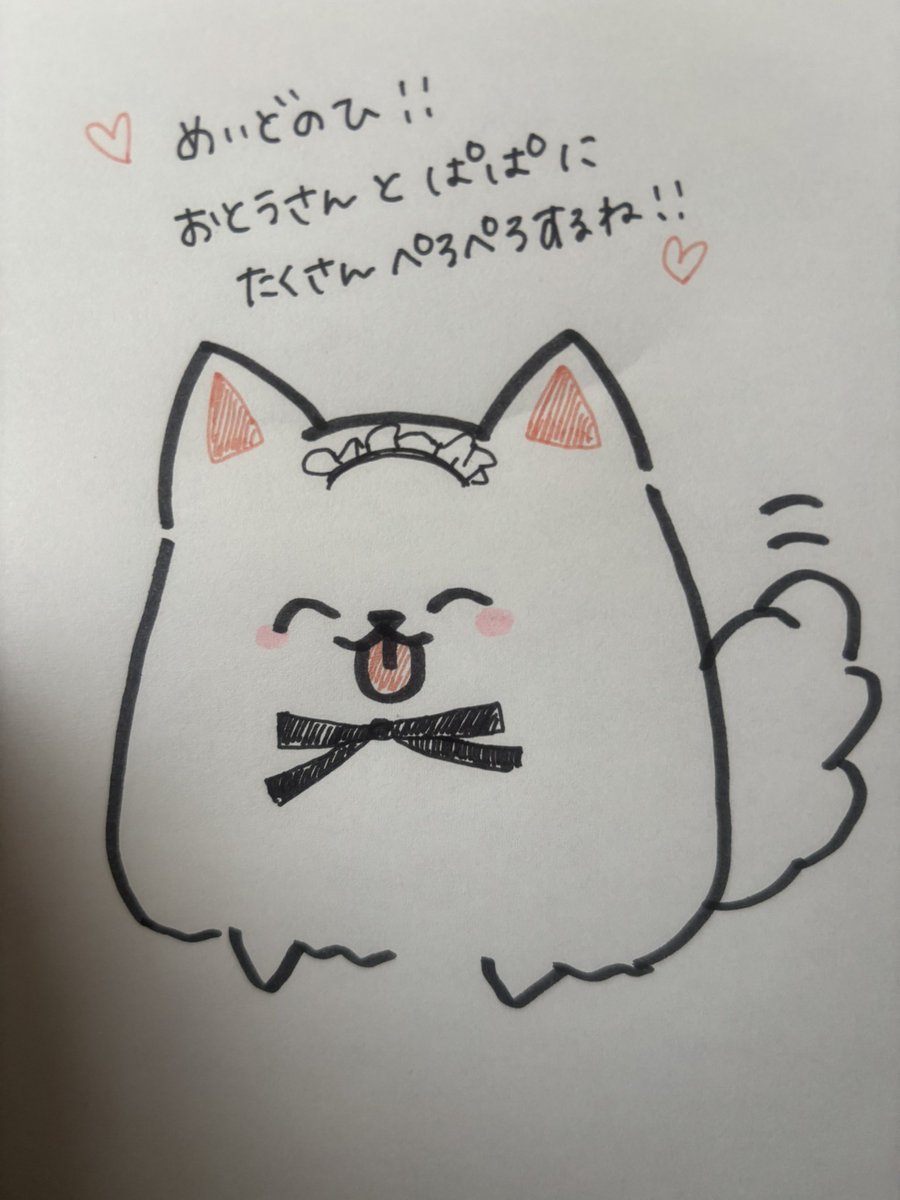 めいどのひ!!
おとうさんとぱぱに
たくさんぺろぺろするね!!